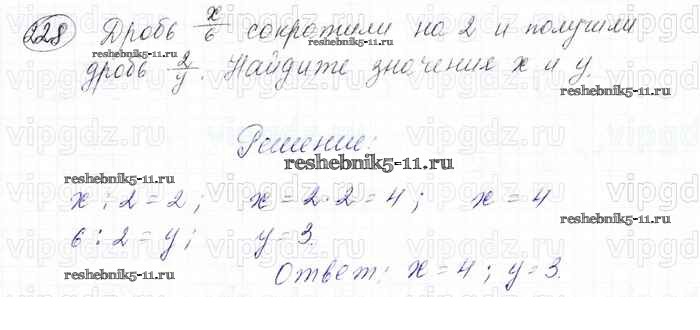 228 Дробь x/6 сократили на 2 и получили
дробь 2/y. Найдите значения x и y.
reshebnik5-11.ru
reshebnik5-11.ru
vipgdz.ru vipgdz.ru vipgdz.ru vipgdz
Решение:
reshebnik5-11.ru
reshebnik5-11.ru
x : 2 = 2; x = 2 · 2 = 4; x = 4
reshebnik5-11.ru
6 : 2 = y; y = 3.
vipgdz.ru vipgdz.ru vipgdz.ru vipgdz
reshebnik5-11.ru
Ответ: x = 4; y = 3.